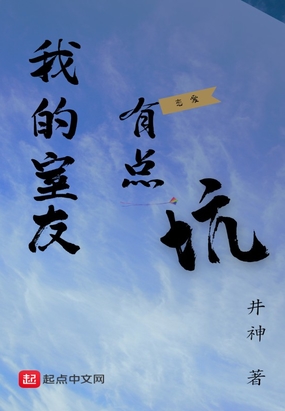 我的室友
有点
坑
恋爱
井神 著
起 起点中文网